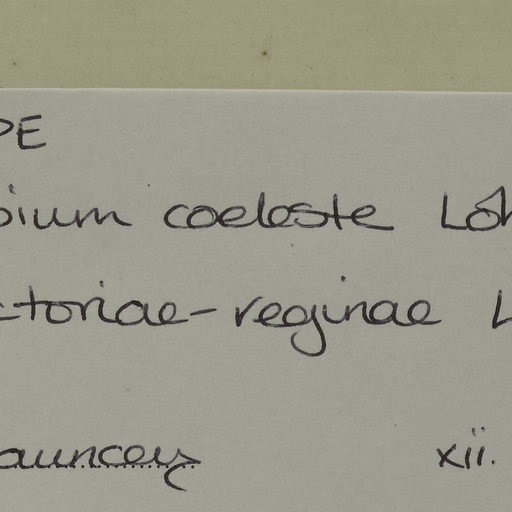 PE
bium coeleste Loh
ctoriae-reginae L
auncey xii.